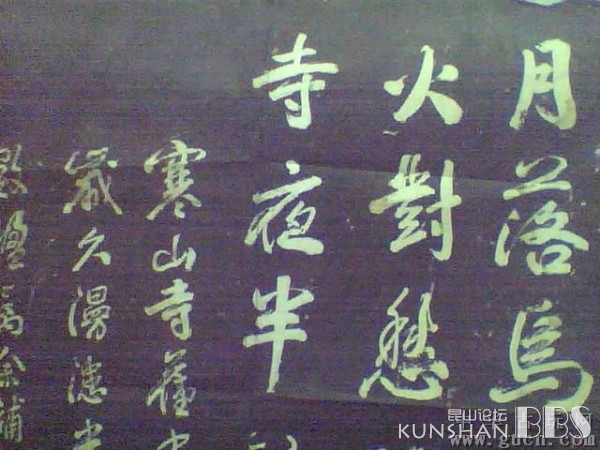 月落烏
火對愁
寺夜半
寒山寺舊有
歲久漫漶光
數楹屬余補
昆山论坛
KUNSHAN BBS
www.gucn.com